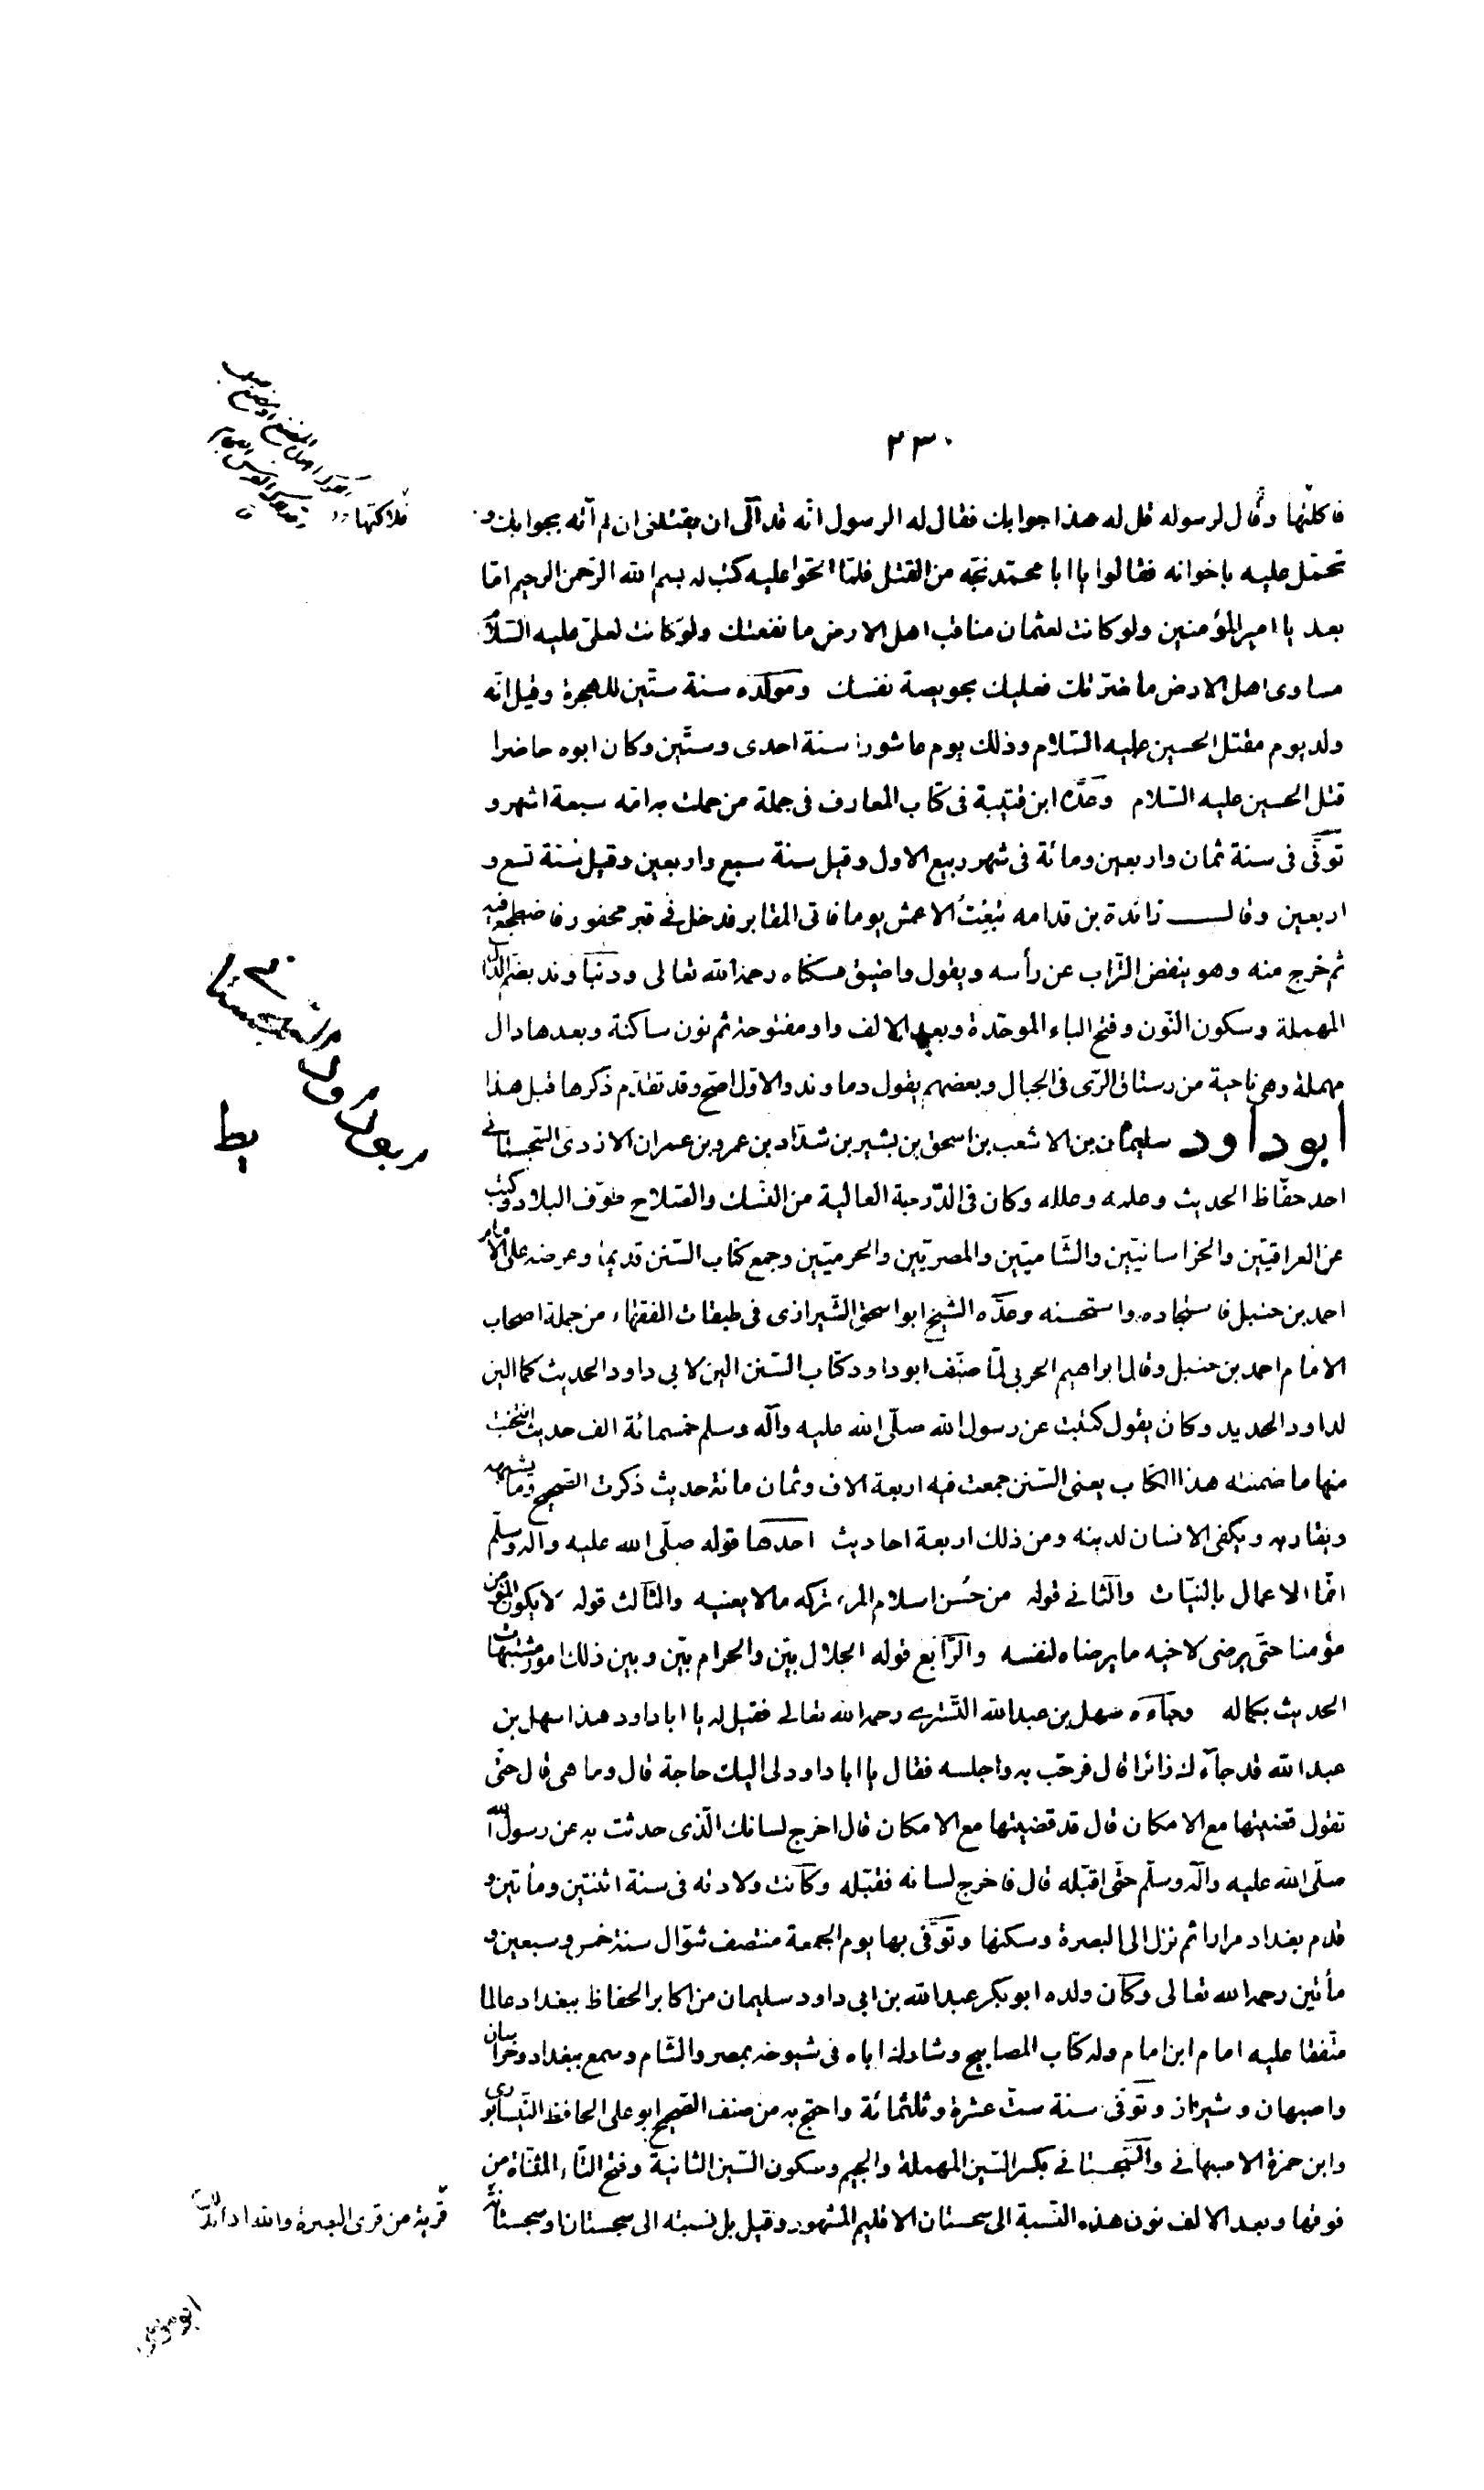 ٢٣٠
فاكلتها وقال لرسوله قل له هذا جوابك فقال له الرسول انّه قد آلى ان يقتلنى ان لم آته بجوابك و
تحمّل عليه باخوانه فقالوا يا ابا محمّد نجّه من القتل فلمّا الحّوا عليه كتب له بسم الله الرّحمن الرحيم امّا
بعد يا امير المؤمنين ولو كانت لعثمان مناقب اهل الارض ما نفعتك ولو كانت لعلىّ عليه السّلام
مساوى اهل الارض ما ضرّتك فعليك بخويصة نفسك ومولده سنة ستّين للهجرة وقيل انّه
ولد يوم مقتل الحسين عليه السّلام وذلك يوم عاشورا سنة احدى وستّين وكان ابوه حاضرا
قتل الحسين عليه السّلام وعدّه ابن قتيبة فى كتاب المعارف فى جملة من حملت به امّه سبعة اشهر و
توفّى فى سنة ثمان واربعين ومائة فى شهر ربيع الاول وقيل سنة سبع واربعين وقيل سنة تسع و
اربعين وقال زائدة بن قدامه تبعت الاعمش يوما فاتى المقابر فدخل فى قبر محفور فاضطجع فيه
ثم خرج منه وهو ينفض التّراب عن رأسه ويقول واضيق مسكناه رحمه الله تعالى ودنباوند بضمّ الدّال
المهملة وسكون النّون وفتح الباء الموحّدة وبعد الالف واو مفتوحة ثم نون ساكنة وبعدها دال
مهملة وهى ناحية من رستاق الرّى فى الجبال وبعضهم يقول دماوند والاوّل اصحّ وقد تقدّم ذكرها قبل هذا
ابو داود سليمان بن الاشعب بن اسحق بن بشير بن شدّاد بن عمرو بن عمران الازدى السّجستانى
احد حفّاظ الحديث وعلمه وعلله وكان فى الدّرجة العالية من النّسك والصّلاح طوّف البلاد وكتب
عن العراقيّين والخراسانيّين والشّاميّين والمصريّين والحرميّين وجمع كتاب السّنن قديما وعرضه على الامام
احمد بن حنبل فاستجاده واستحسنه وعدّه الشيخ ابو اسحق الشّيرازى فى طبقات الفقهاء من جملة اصحاب
الامام احمد بن حنبل وقال ابراهيم الحربى لمّا صنّف ابو داود كتاب السّنن الين لابى داود الحديث كما الين
لداود الحديد وكان يقول كتبت عن رسول الله صلّى الله عليه وآله وسلم خمسمائة الف حديث انتخبت
منها ما ضمنته هذا الكتاب يعنى السّنن جمعت فيه اربعة الاف وثمان مائة حديث ذكرت الصّحيح وما يشبهه
ويقاربه ويكفى الانسان لدينه ومن ذلك اربعة احاديث احدها قوله صلّى الله عليه واله وسلّم
انّما الاعمال بالنيّات والثانى قوله من حُسن اسلام المرء تركه مالا يعنيه والثالث قوله لا يكون المؤمن
مؤمنا حتّى يرضى لاخيه ما يرضاه لنفسه والرّابع قوله الحلال بيّن والحرام بيّن وبين ذلك امور مشتبهات
الحديث بكماله وجاءه سهل بن عبدالله التّسترى رحمه الله تعالى فقيل له يا ابا داود هذا سهل بن
عبدالله قد جآءك زائرا قال فرحّب به واجلسه فقال يا ابا داود لى اليك حاجة قال وما هى قال حتّى
تقول قضيتها مع الامكان قال قد قضيتها مع الامكان قال اخرج لسانك الّذى حدثت به عن رسول الله
صلّى الله عليه وآله وسلّم حتّى اقبّله قال فاخرج لسانه فقبّله وكانت ولادته فى سنة اثنتين ومأتين و
قدم بغداد مرارا ثم نزل الى البصرة وسكنها وتوفّى بها يوم الجمعة منتصف شوّال سنة خمس وسبعين و
مأتين رحمه الله تعالى وكان ولده ابو بكر عبدالله بن ابى داود سليمان من اكابر الحفاظ ببغداد عالما
متّفقا عليه امام ابن امام وله كتاب المصابيح وشارك اباه فى شيوخه بمصر والشّام وسمع ببغداد وخراسان
واصبهان وشيراز وتوفّى سنة ستّ عشرة وثلثمائة واحتج به من صنف الصّحيح ابو على الحافظ النّيسابورى
وابن حمزة الاصبهانى والسّجستانى بكسر السّين المهملة والجيم وسكون السّين الثانية وفتح التّاء المثنّاة من
فوقها وبعد الالف نون هذه النّسبة الى سجستان الاقليم المشهور وقيل بل نسبته الى سجستان او سجستانة
قرية من قرى البصرة والله
فلاكتها
يط